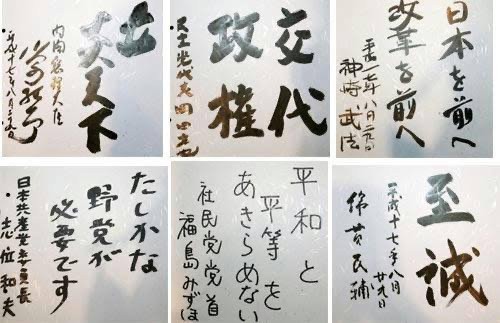 天下
内閣総理大臣
交代
政権
民主党代表 岡田克也
日本を前へ
改革を前へ
神崎武法
たしかな
野党が
必要です
日本共産党委員長
志位和夫
平和と
平等を
あきらめない
社民党党首
福島みずほ
至誠
平成十七年八月
廿九日
綿貫民輔